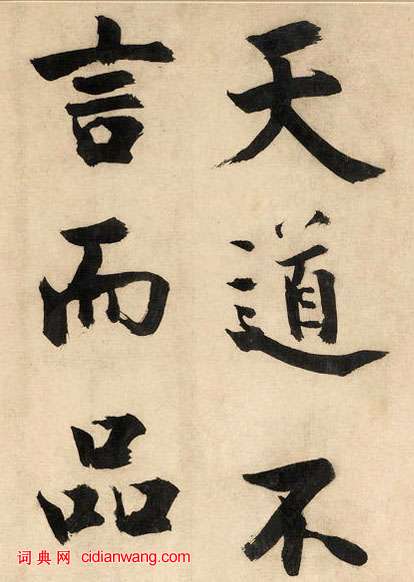 天道不
言而品
词典网 cidianwang.com